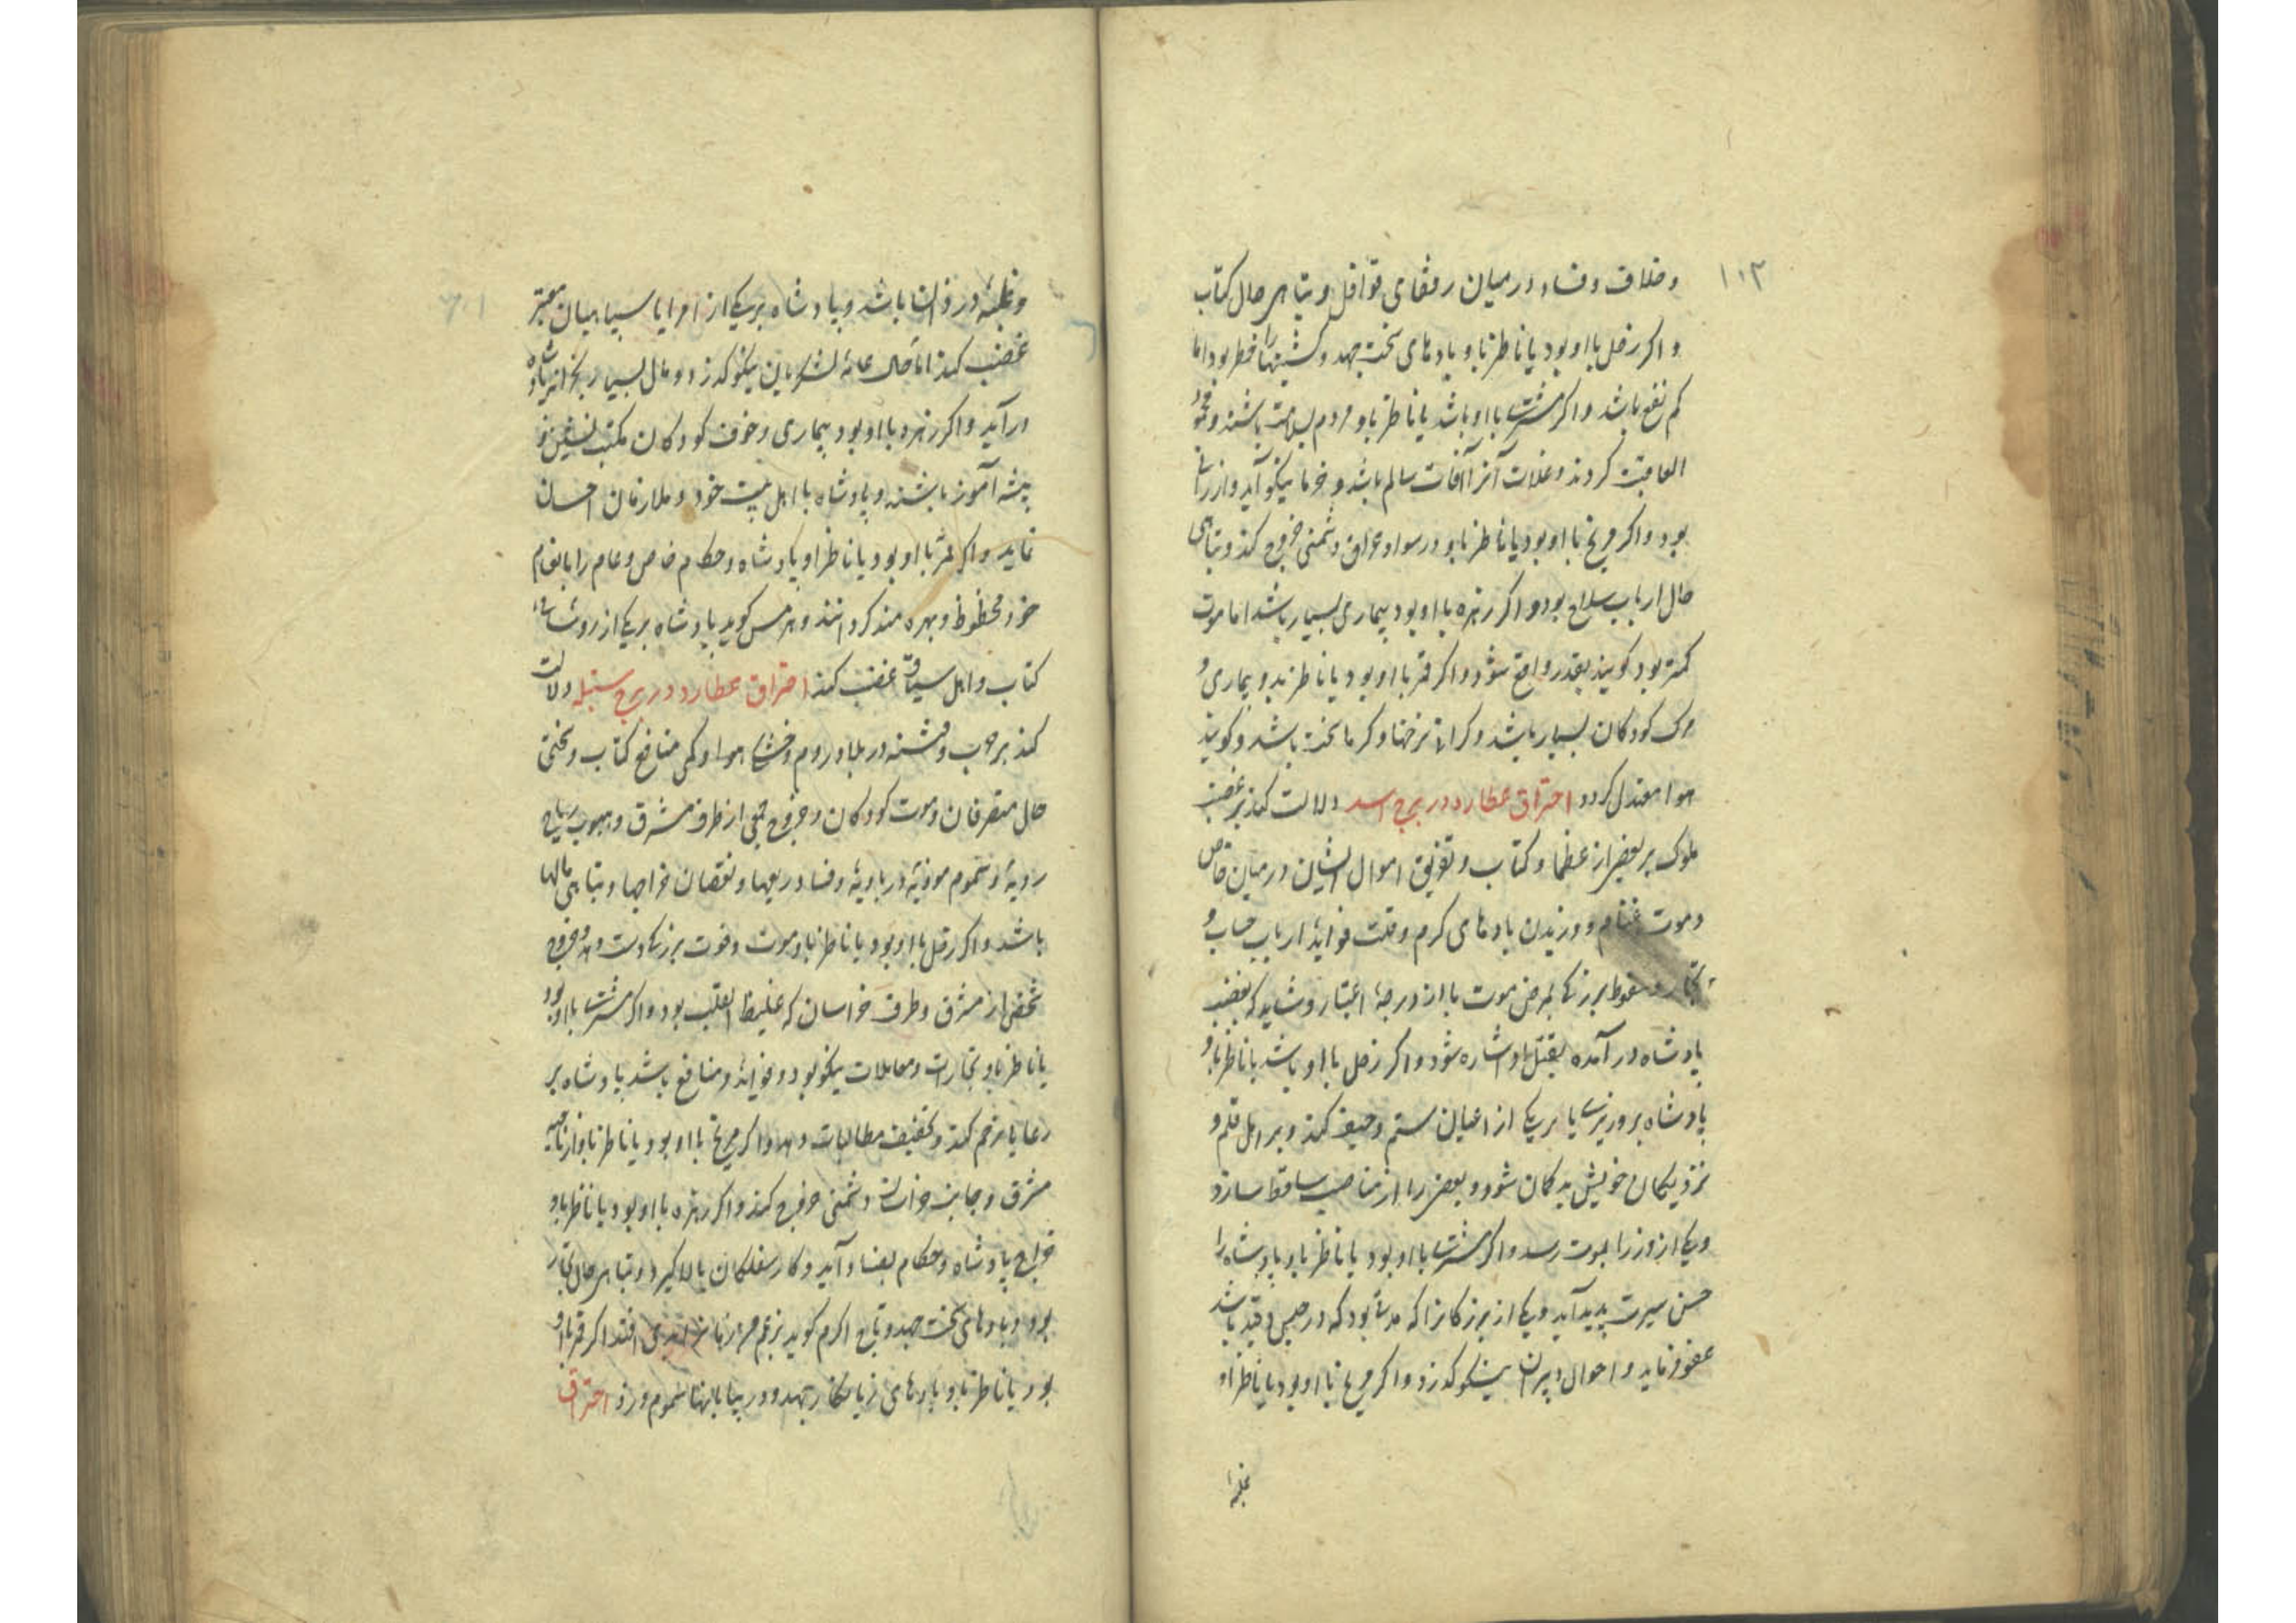 ۱۰۳
وخلاف وفساد در میان رفقای قوافل و تباهی حال کتاب
و اکر زحل با او بود یا ناظر باو بادهای سخت جهد و کشتیها را خطر بود اما
کم نفع باشد و اکر مشتری با او باشد یا ناظر باو مردم بسلامت باشند و محمود
العاقبت کردند و غلات از آفات سالم باشد و خرما نیکو آید و ارزانی
بود و اکر مریخ با او بود یا ناظر باو در سواد عراق دشمنی خروج کند و تباهی
حال ارباب سلاح بود و اکر زهره با او بود بیماری بسیار باشد اما موت
کمتر بود کویند بقدر واقع شود و اکر قمر با او بود یا ناظر بدو بیماری و
مرک کودکان بسیار باشد و کرانی نرخها و کرما سخت باشد و کویند
هوا معتدل کردد احتراق عطارد در برج اسد دلالت کند بر غضب
ملوک بر بعضی از عظما و کتاب و تفریق اموال ایشان در میان خاص
و موت اغنام و وزیدن بادهای کرم و قلت فواید ارباب حساب و
تجار و سقوط بزرکی بمرض موت یا از درجهٔ اعتبار و شاید که بغضب
پادشاه در آمده بقتل او اشاره شود و اکر زحل با او باشد یا ناظر باو
پادشاه بر وزیری یا بر یکی از اعیان ستم و حیف کند و بر اهل قلم و
نزدیکان خویش بدکمان شود و بعضی را از مناصب ساقط سازد
و یکی از وزرا بموت رسد و اکر مشتری با او بود یا ناظر باو پادشاه را
حسن سیرت پدید آید و یکی از بزرکانرا که مدتی بود که در حبس و قید باشد
عفو فرماید و احوال دبیران نیکو کذرد و اکر مریخ با او بود یا ناظر باو
باشد و پادشاه بر یکی از امرا یا سپاهیان معتبر
غضب کند اما حال عامهٔ لشکریان نیکو کذرد و مال بسیار بخزانه پادشاه
درآید و اکر زهره با او بود بیماری و خوف کودکان مکتب نشین و
پیشه آموز باشند و پادشاه با اهل بیت خود و ملازمان احسان
نماید و اکر قمر با او بود یا ناظر او پادشاه و حکام خاص و عام را بانعام
خود محظوظ و بهره مند کردانند و هرمس کوید پادشاه بر یکی از روسای
کتاب و اهل سیاق غضب کند احتراق عطارد در برج سنبله دلالت
کند بر حرب و فتنه در بلاد روم و خشکی هوا و کمی منافع کتاب و سختی
حال متصرفان و موت کودکان و خروج جمعی از طرف مشرق و هبوب ریاح
ردیه و سموم موذیه در بادیه و فساد ریعها و نقصان خراجها و تباهی مالها
باشد و اکر زحل با او بود یا ناظر باو موت و فوت بزرکی دست دهد و خروج
شخصی از مشرق و طرف خراسان که غلیظ القلب بود و اکر مشتری با او بود
یا ناظر باو تجارات و معاملات نیکو بود و فواید و منافع باشد پادشاه بر
رعایا ترحم کند و تخفیف مطالبات دهد و اکر مریخ با او بود یا ناظر باو از ناحیه
مشرق و جانب خراسان دشمنی خروج کند و اکر زهره با او بود یا ناظر باو
خراج پادشاه و حکام بفساد آید و کار سفلکان بالا کیرد و تباهی حال تجار
بود و بادهای سخت جهد و
بود یا ناظر باو بادهای زیانکار جهد و در بیابانها سموم وزد احتراق